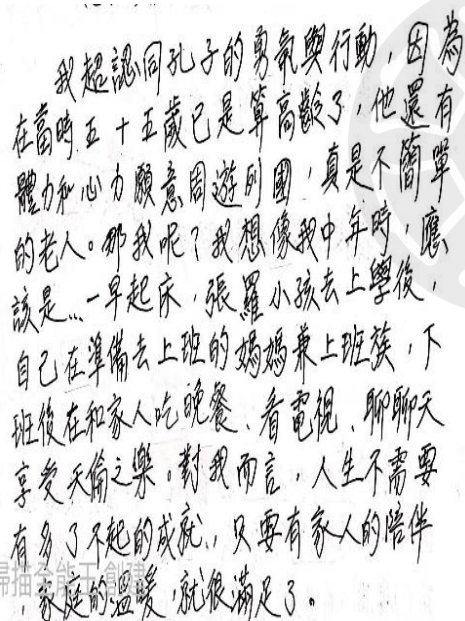 我超認同孔子的勇氣與行動，因為
在當時五十五歲已是算高齡了，他還有
體力和心力願意周遊列國，真是不簡單
的老人。那我呢？我想像我中年時，應
該是…一早起床，張羅小孩去上學後，
自己在準備去上班的媽媽兼上班族，下
班後在和家人吃晚餐、看電視、聊聊天
享受天倫之樂。對我而言，人生不需要
有多了不起的成就，只要有家人的陪伴
，家庭的溫暖，就很滿足了。
掃描全能王 創建